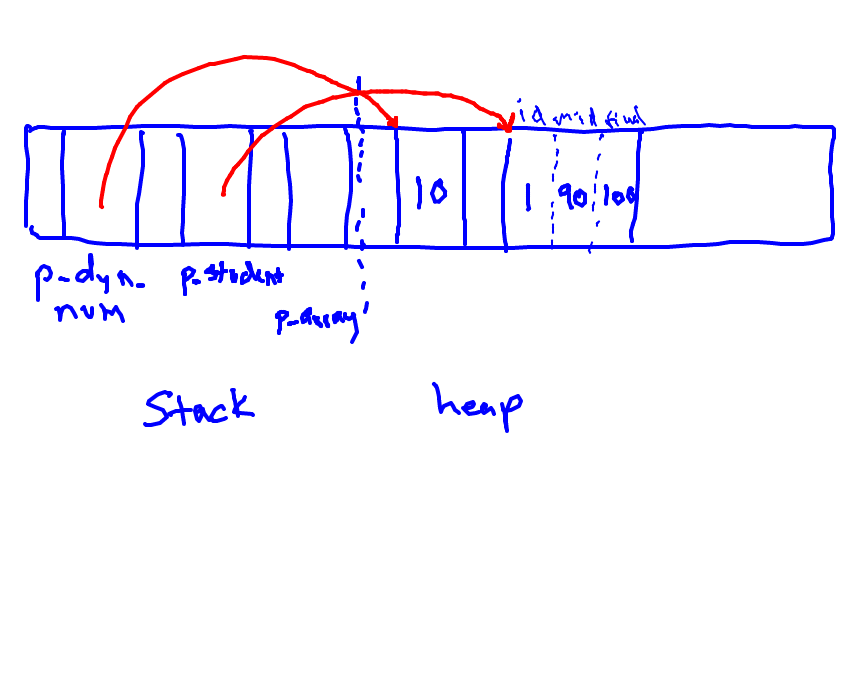 id mid final
10
1 90 100
p_dyn_
num
p_student
p_array
Stack
heap